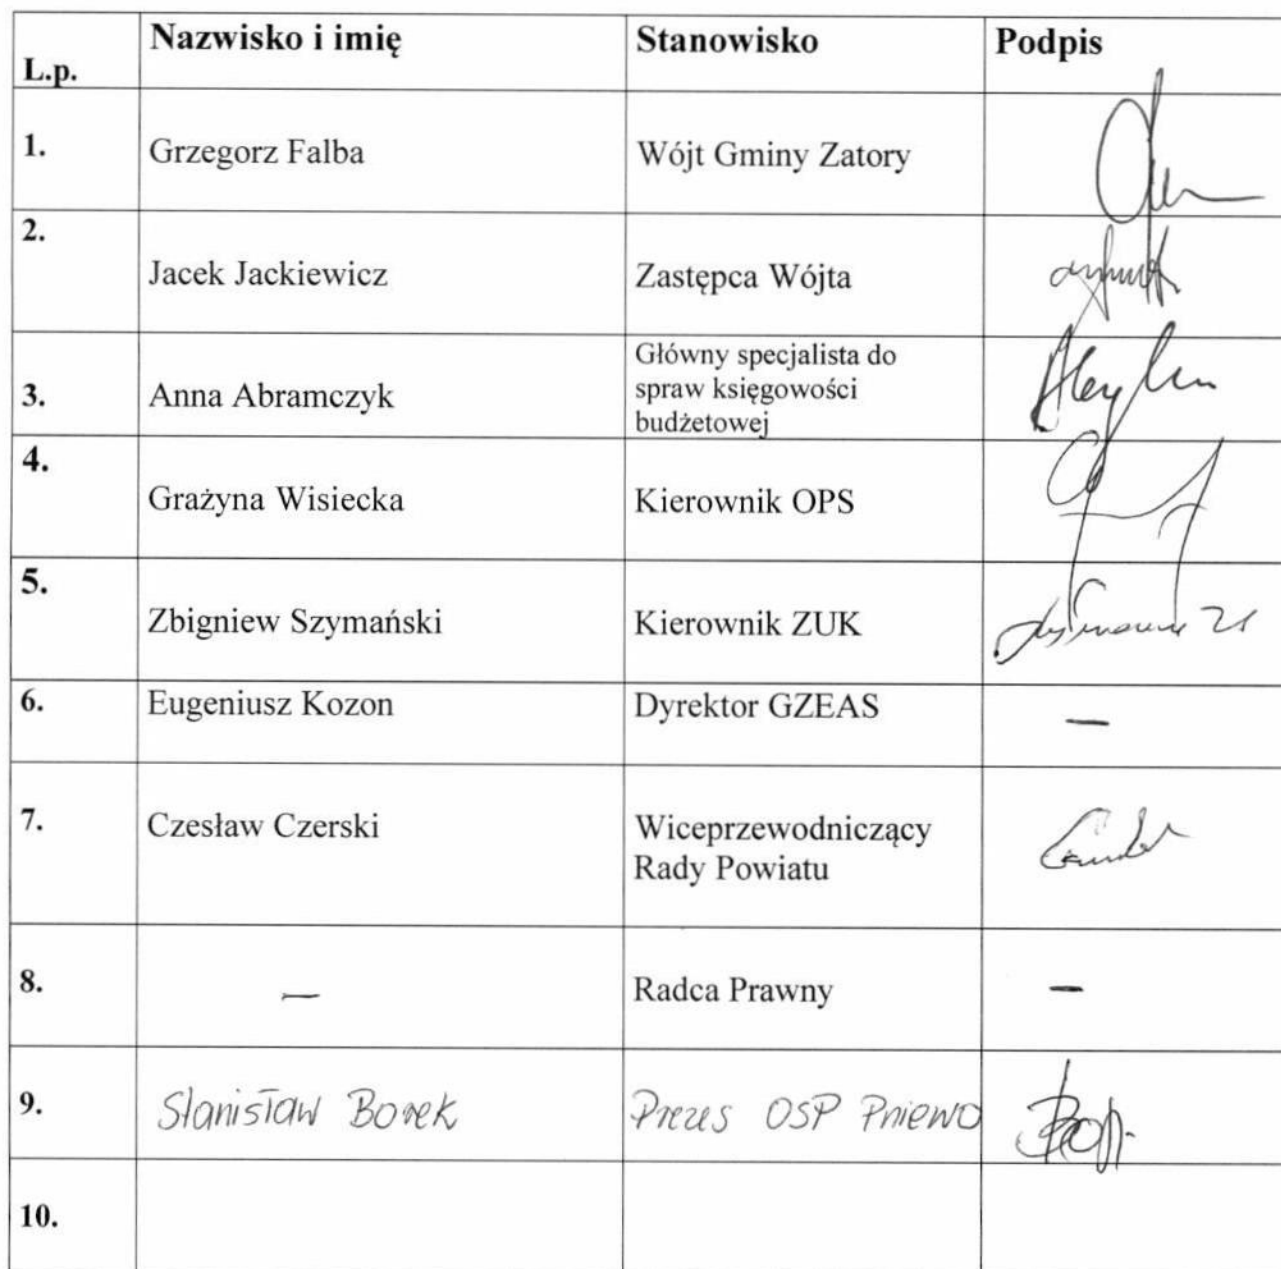 L.p. Nazwisko i imię Stanowisko Podpis
1. Grzegorz Falba Wójt Gminy Zatory
2. Jacek Jackiewicz Zastępca Wójta
3. Anna Abramczyk Główny specjalista do
spraw księgowości
budżetowej
4. Grażyna Wisiecka Kierownik OPS
5. Zbigniew Szymański Kierownik ZUK
6. Eugeniusz Kozon Dyrektor GZEAS —
7. Czesław Czerski Wiceprzewodniczący
Rady Powiatu
8. — Radca Prawny —
9. Stanisław Borek Prezes OSP Pniewo
10.